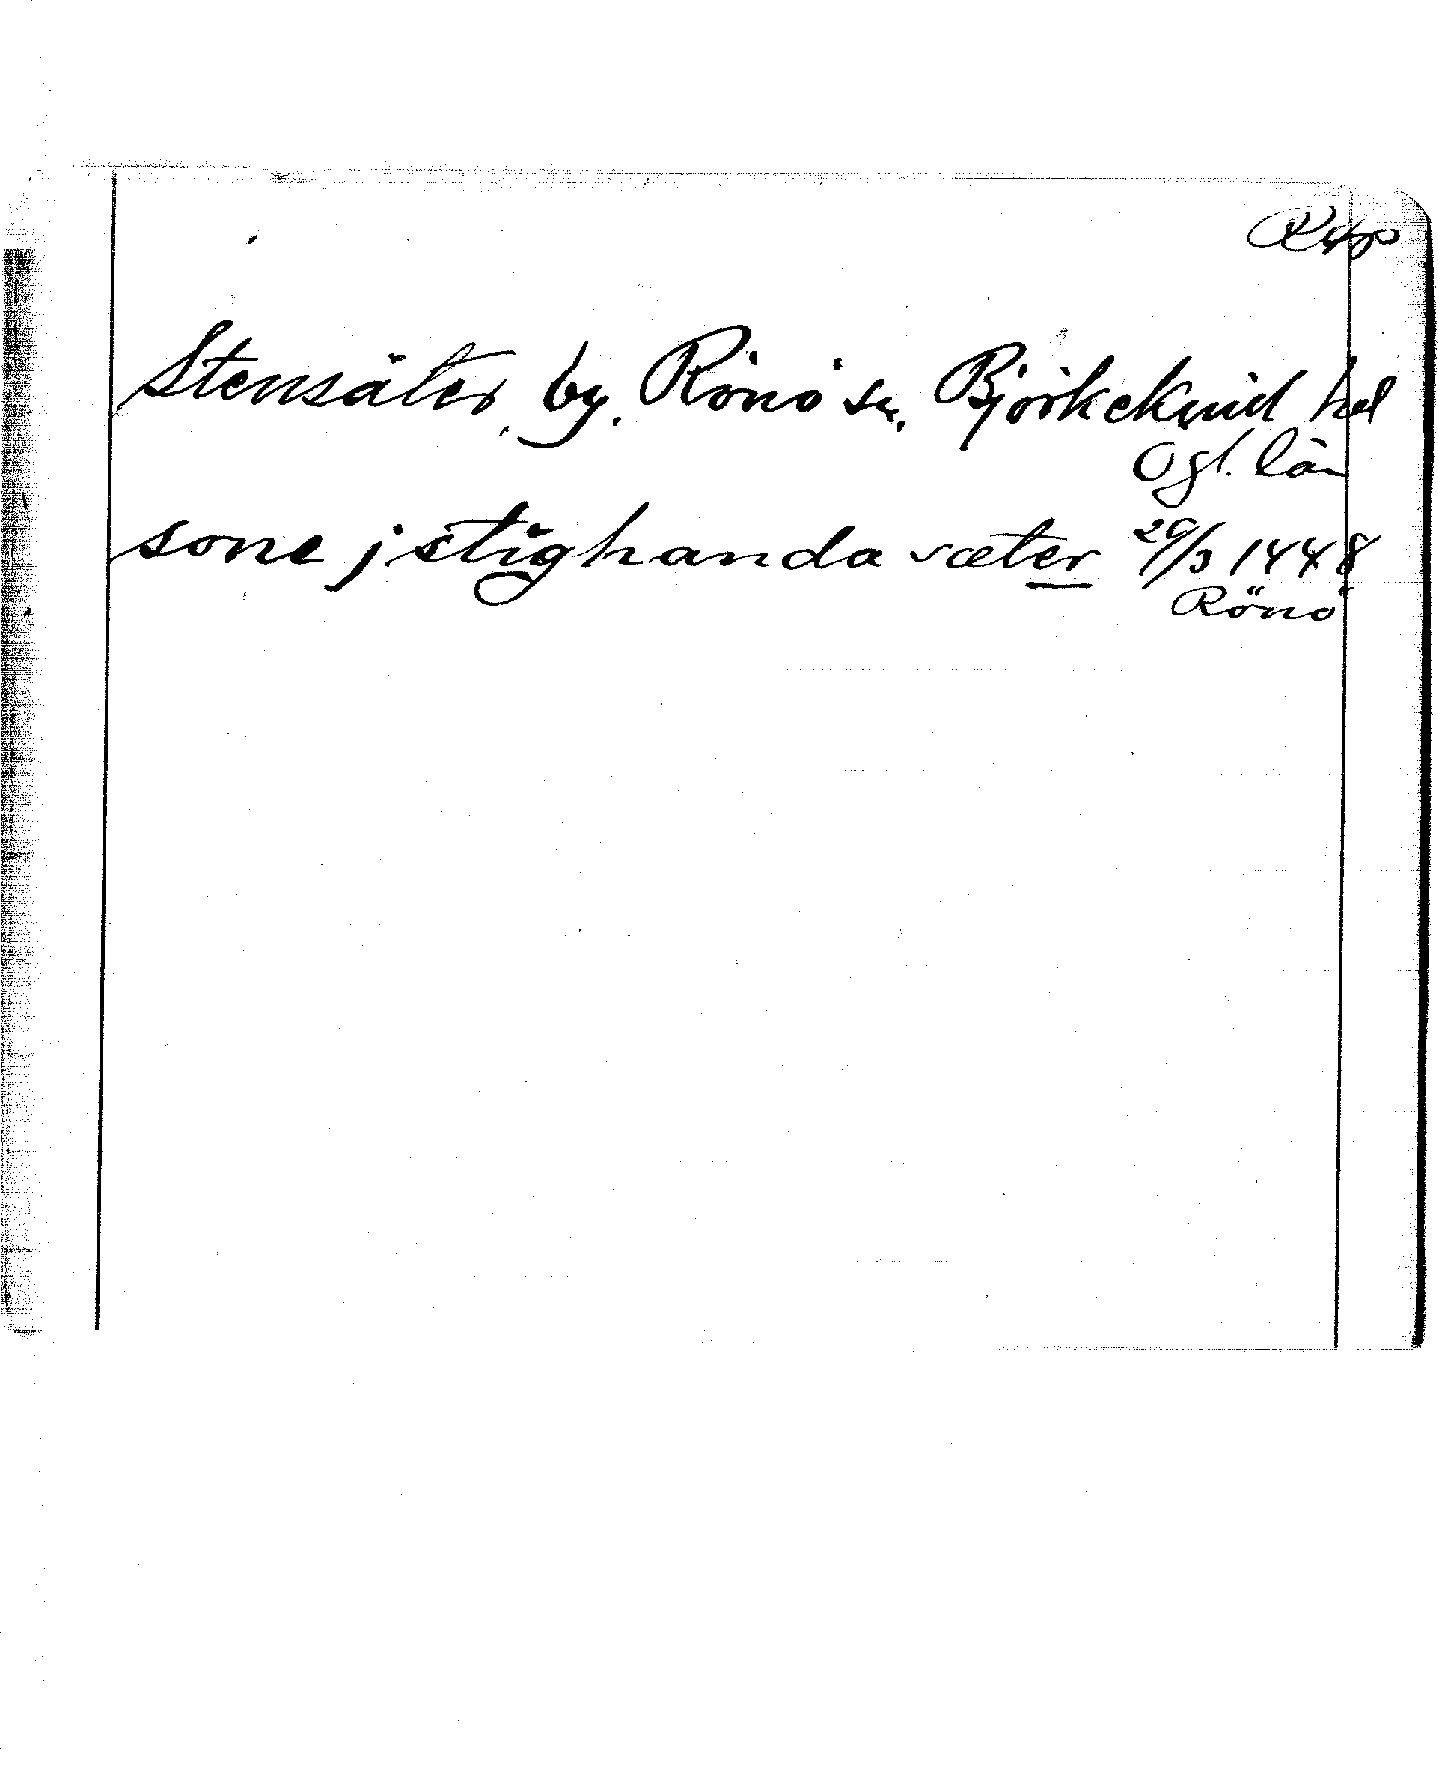 Stensäter, by. Rönö sn. Björkekind hd
Ögl. län
sone j stighanda sæter 29/3 1448
Rönö